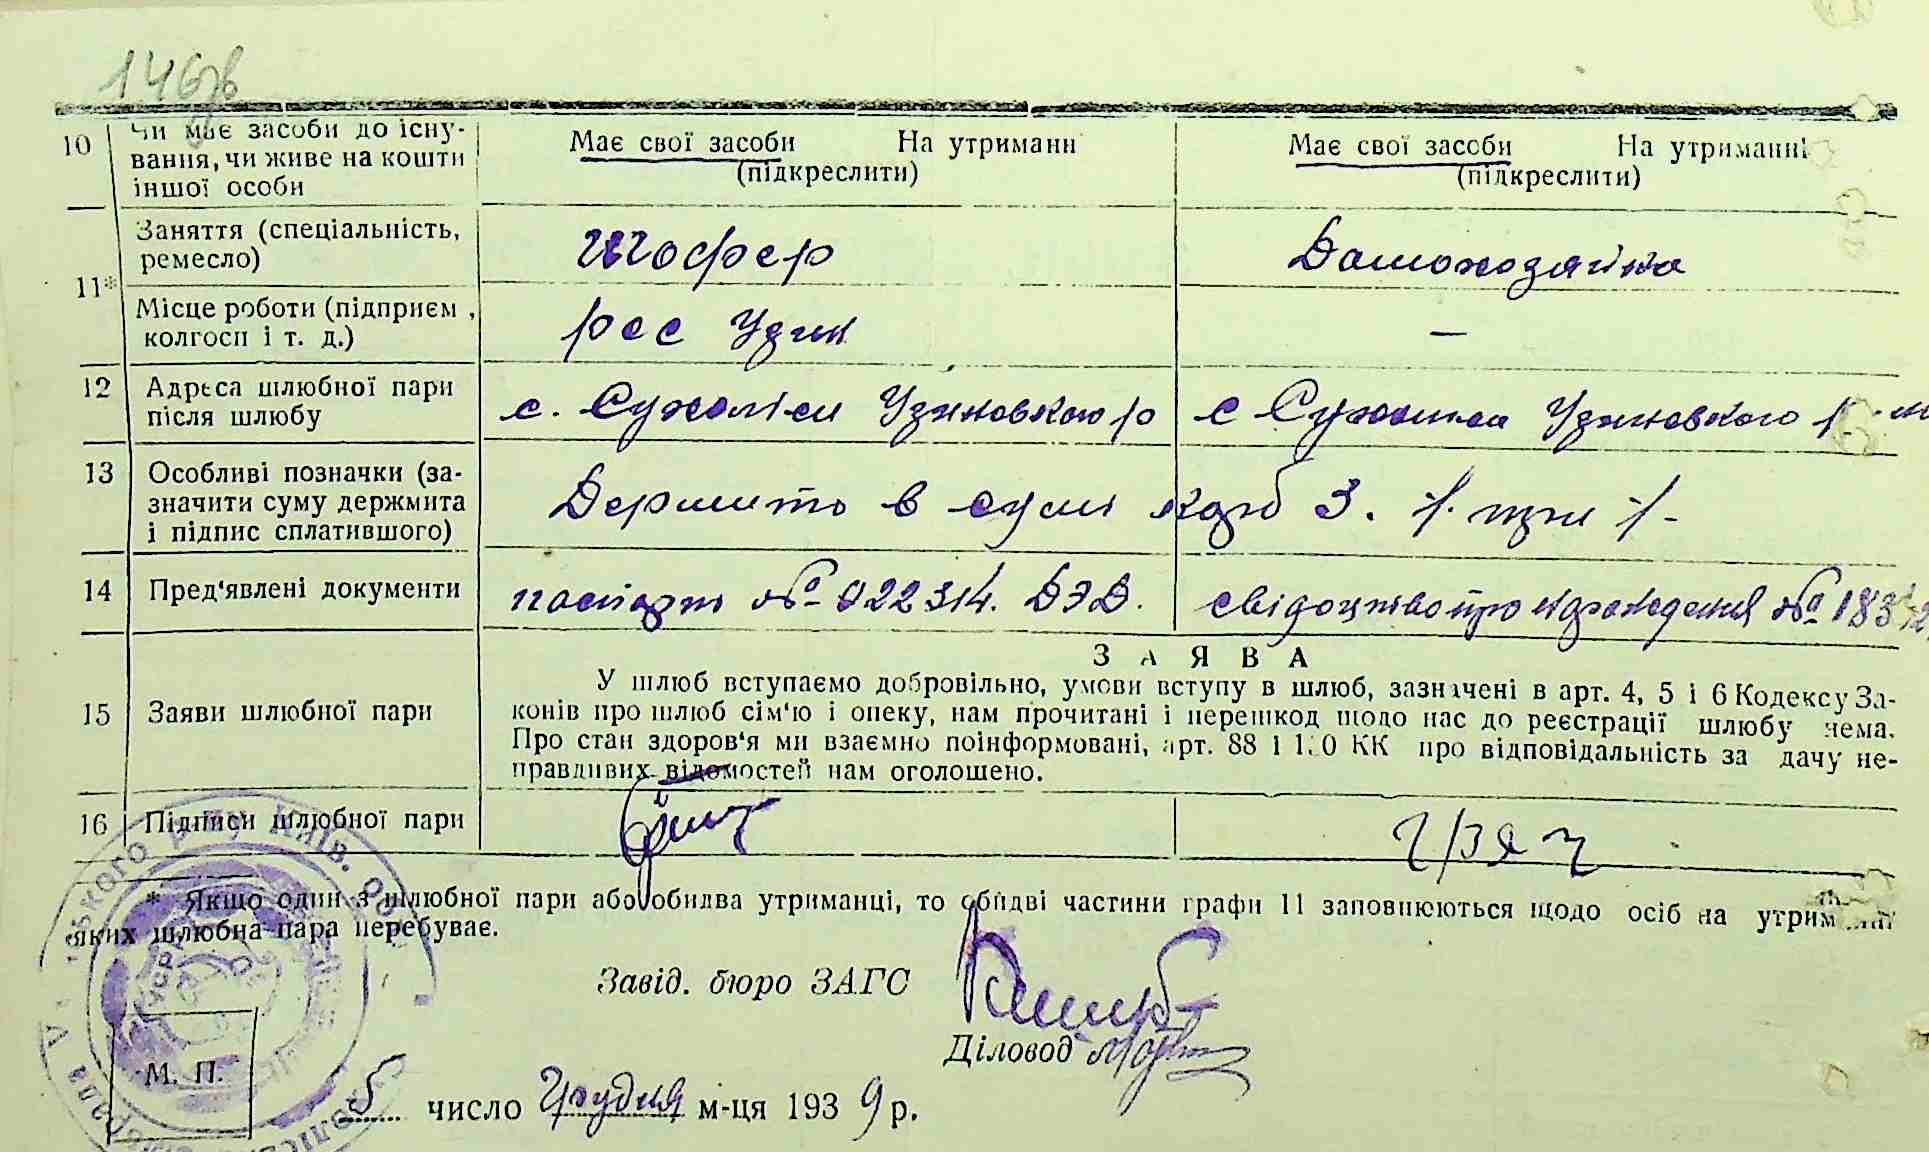 146зв
10 Чи має засоби до існу-
вання, чи живе на кошти
іншої особи
Має свої засоби На утриманн
(підкреслити)
Має свої засоби На утриманні
(підкреслити)
11*
Заняття (спеціальність,
ремесло)
Шофер
Домохозяйка
Місце роботи (підприєм ,
колгосп і т. д.)
рсс Узин
—
12 Адреса шлюбної пари
після шлюбу
с. Сухоліси Узиновского р
с Сухолиси Узиновского р-
13 Особливі позначки (за-
значити суму держмита
і підпис сплатившого)
Держмито в сумі карб 3. /. три /-
14 Пред'явлені документи
паспорт № 022314. ДЭД.
свідоцтво про нарождения №
15 Заяви шлюбної пари
З А Я В А
У шлюб вступаємо добровільно, умови вступу в шлюб, зазначені в арт. 4, 5 і 6 Кодексу За-
конів про шлюб сім'ю і опеку, нам прочитані і перешкод щодо нас до реєстрації шлюбу нема.
Про стан здоров'я ми взаємно поінформовані, арт. 88 і КК про відповідальність за дачу не-
правдивих відомостей нам оголошено.
16 Підписи шлюбної пари
* Якщо один з шлюбної пари або обидва утриманці, то обидві частини графи 11 заповнюються щодо осіб на утриманні
яких шлюбна пара перебуває.
Завід. бюро ЗАГС
Діловод
М. П.
5 число Грудня м-ця 1939 р.